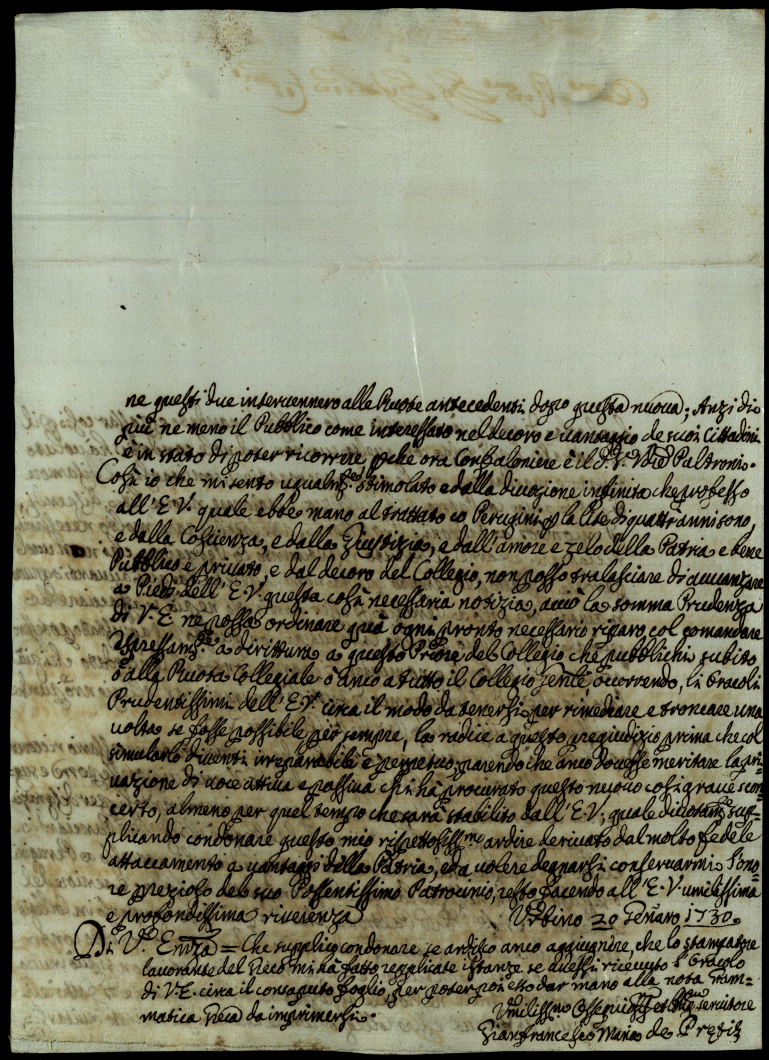 ne questi due intervennero alle Ruote antecedenti dopo questa nuova; Anzi di
più ne meno il Pubblico come interessato nel decoro e vantaggio de suoi Cittadini
è in stato di poter ricorrere, pche ora Confaloniere è il Sr. Paltroni.
Così io che mi sento ugualmte stimolato e dalla divozione infinita che professo
all'E.V. quale ebbe mano al trattato co Perugini p la lite di quattr'anni sono,
e dalla Coscienza, e dalla Giustizia, e dall'amore e zelo della Patria e bene
Pubblico e privato, e dal decoro del Collegio, non posso tralasciare di avvanzare
a Piedi dell'E.V. questa così necessaria notizia, acciò la somma Prudenza
di V.E. ne possa ordinare quà ogni pronto necessario riparo, col comandare
espressamte a dirittura a questo Priore del Collegio che pubblichi subito
ò alla Ruota Collegiale ò anco a tutto il Collegio occorrendo, li Oracoli
Prudentissimi dell'E.V. circa il modo da tenersi per rimediare e troncare una
volta se fosse possibile per sempre, la radice a questo pregiudizio prima che col
simularlo diventi irreparabile e perpetuo, parendo che anco dovesse meritare la pri=
vazione di voce attiva e passiva chi hà procurato questo nuovo così grave scon=
certo, almeno per quel tempo che sarà stabilito dall'E.V., quale divotamte sup=
plicando condonare questo mio rispettosissmo ardire derivato dal molto fedele
attaccamento a vantaggi della Patria, ed a volere degnarsi conservarmi l'ono=
re prezioso del suo Possentissimo Patrocinio, resto facendo all'E.V. umilissima
e profondissima riverenza Urbino 20 Gennaro 1730.
Di Va Emza = Che supplico condonare se ardisco anco aggiungere, che lo stampatore
lavorante del Greco mi hà fatto replicate istanze se avessi ricevuto l'Oracolo
di V.E. circa il consaputo foglio, per poter poi esso dar mano alla nota Gram=
matica Greca da imprimersi.
Umilissimo Ossequiosissmo servitore
Gianfrancesco Maria de Pretis